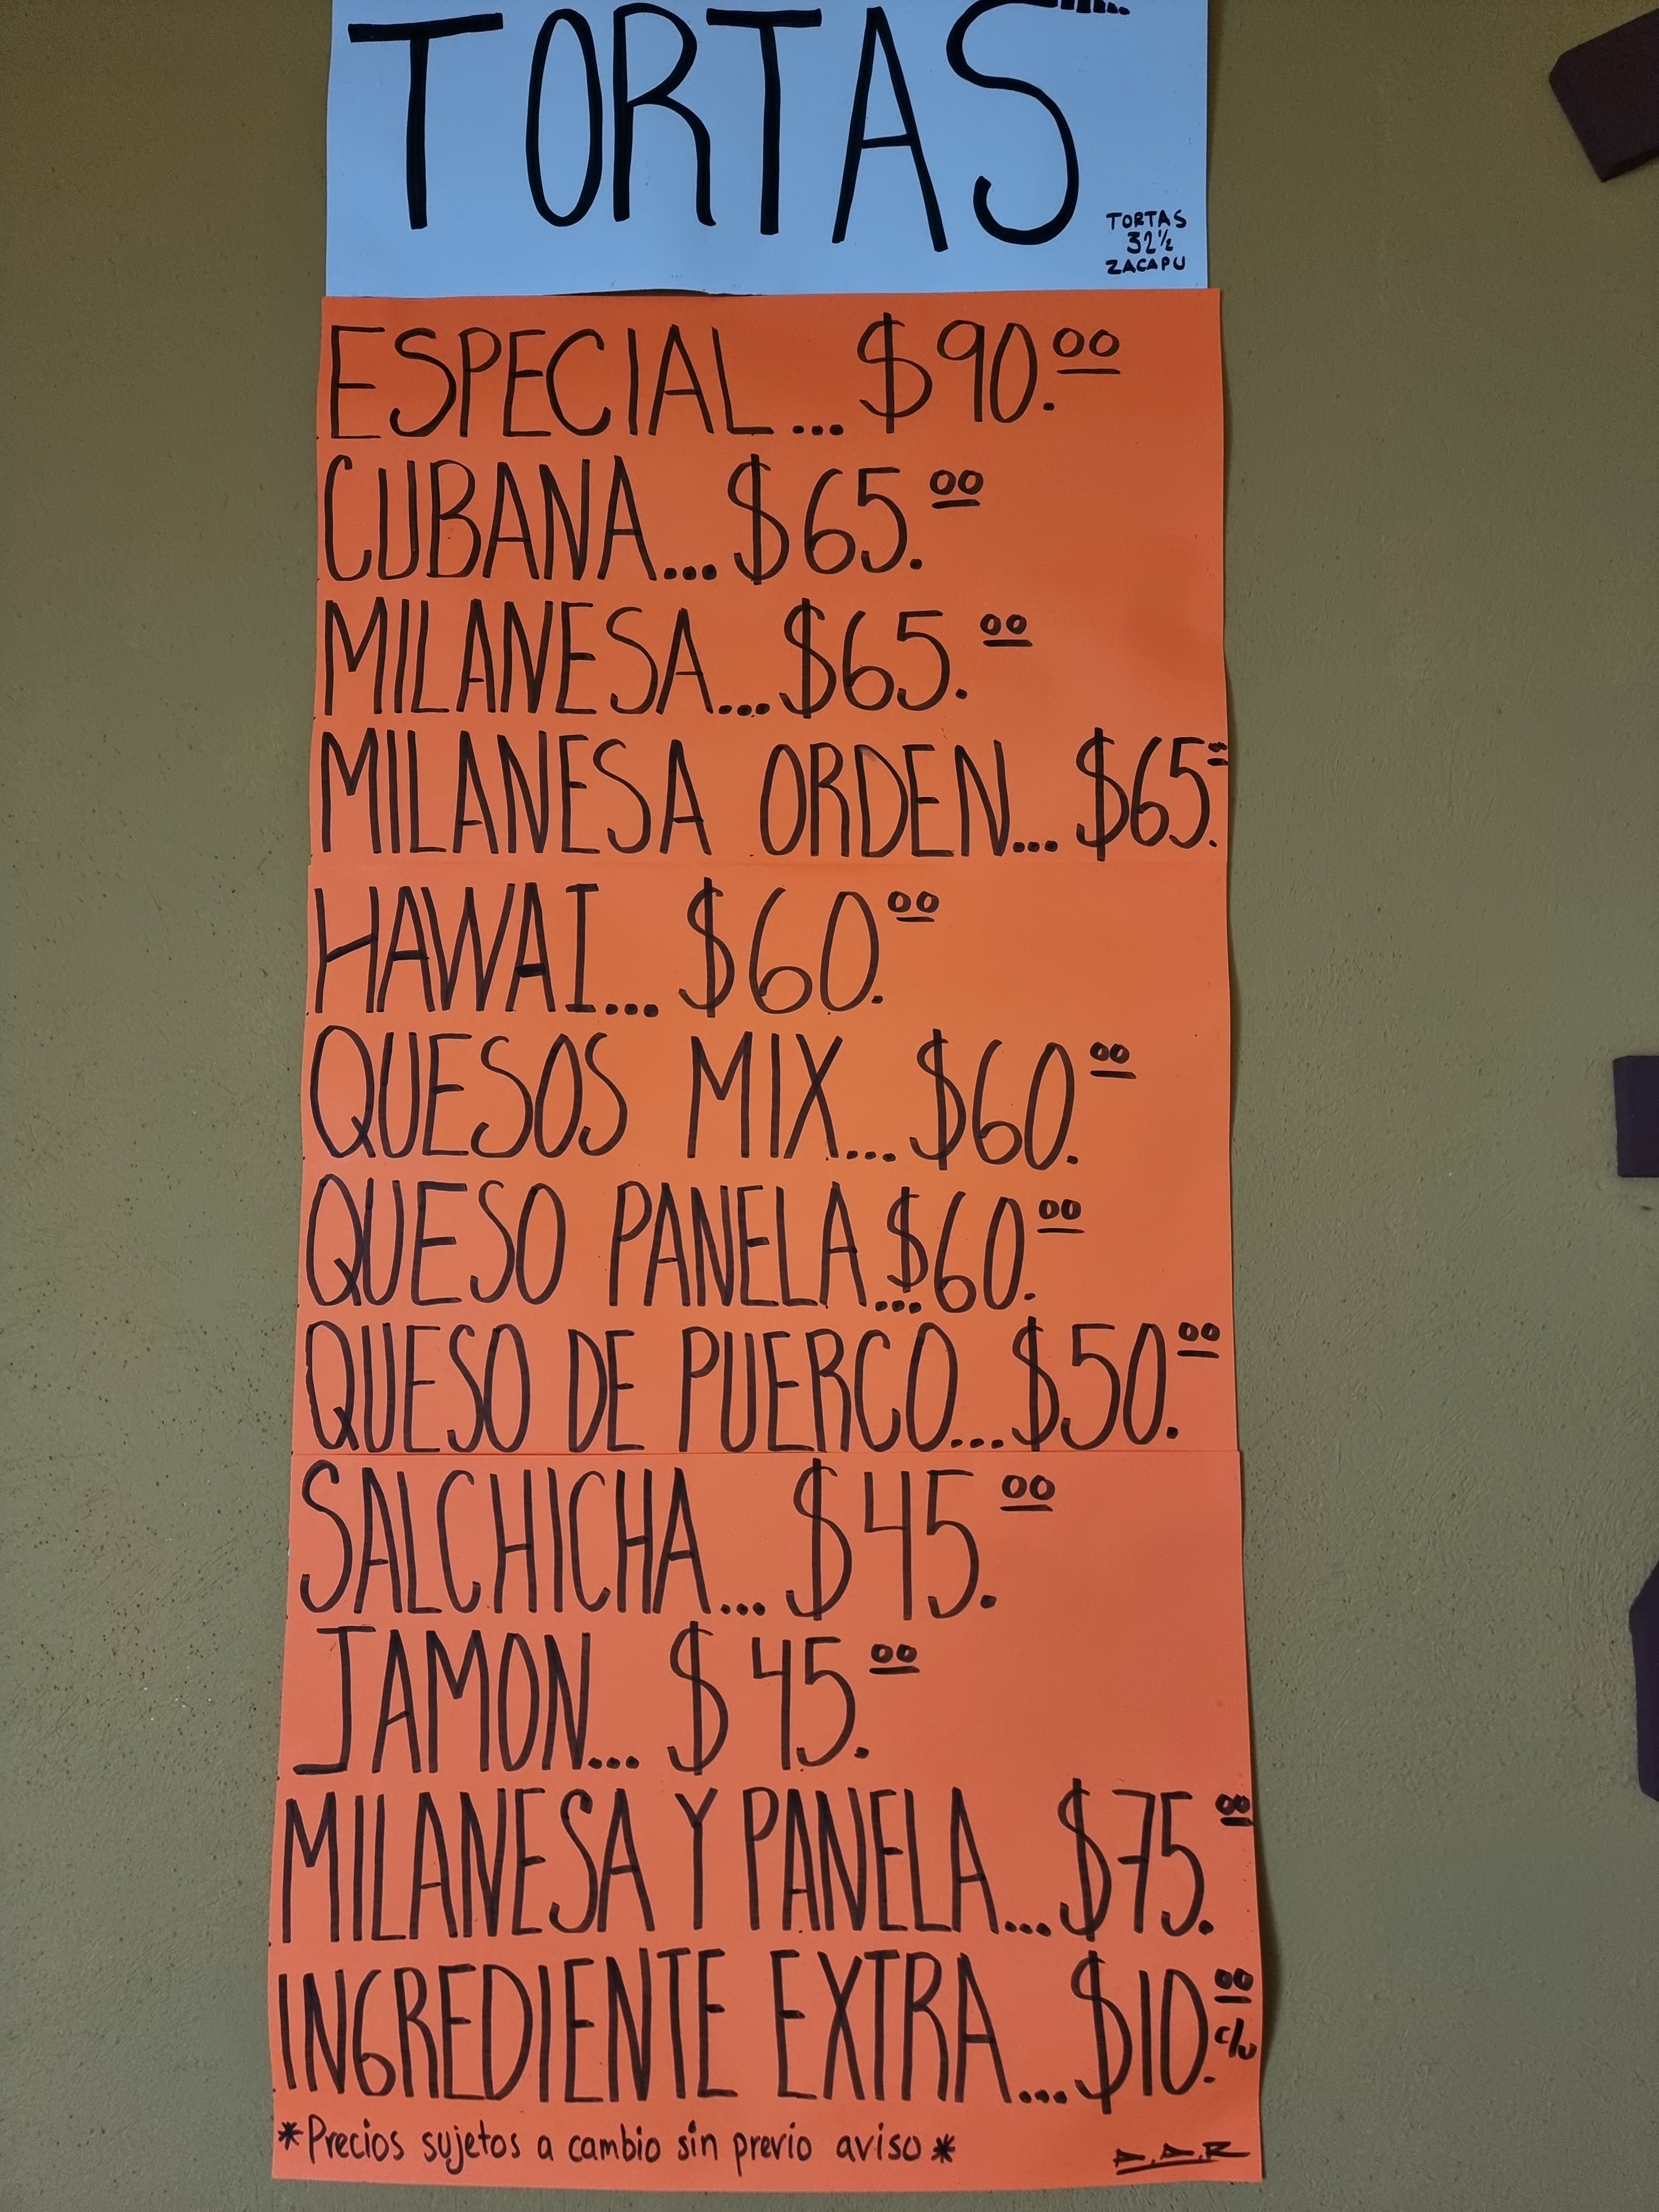 TORTAS
TORTAS
32½
ZACAPU
ESPECIAL...$90.00
CUBANA...$65.00
MILANESA...$65.00
MILANESA ORDEN...$65.
HAWAI...$60.00
QUESOS MIX...$60.00
QUESO PANELA...$60.00
QUESO DE PUERCO...$50.00
SALCHICHA...$45.00
JAMON...$45.00
MILANESA Y PANELA...$75.00
INGREDIENTE EXTRA...$10.00 c/u
*Precios sujetos a cambio sin previo aviso*